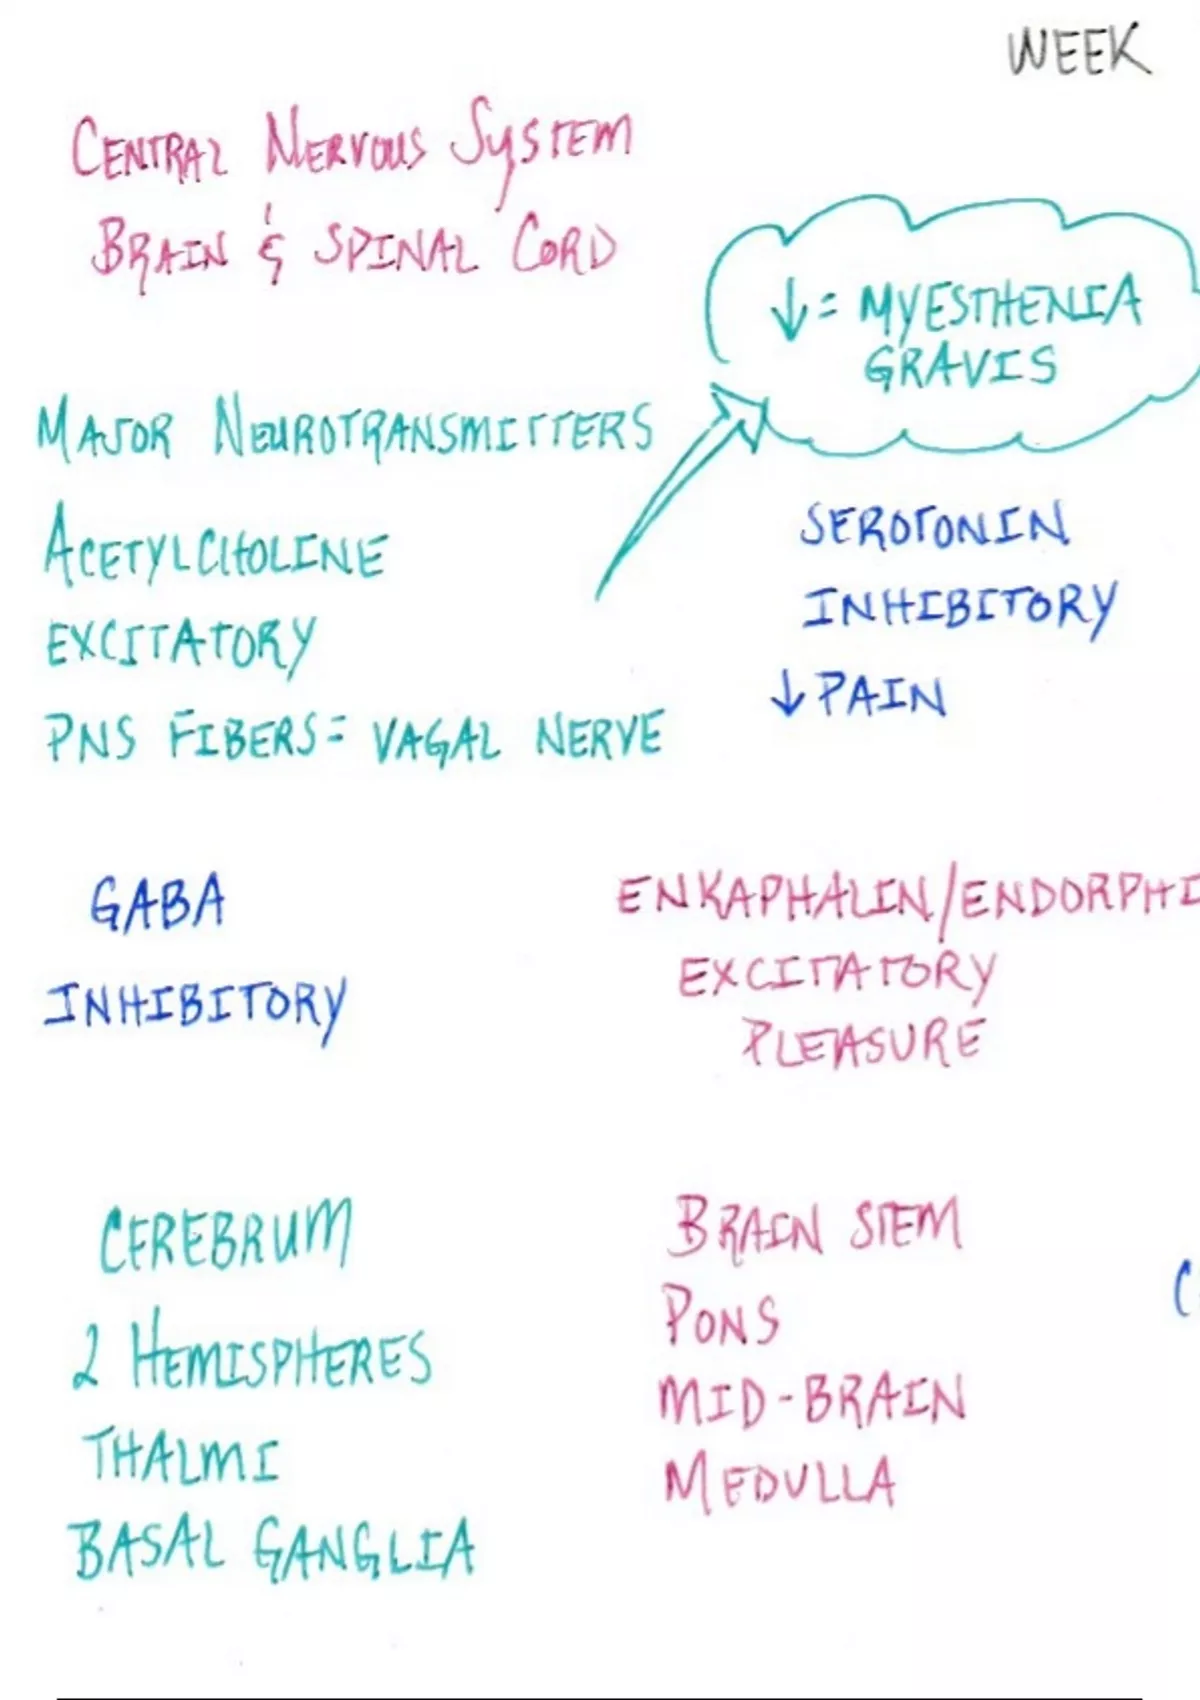 WEEK
CENTRAL NERVOUS SYSTEM
BRAIN & SPINAL CORD
↓= MYESTHENIA
GRAVIS
MAJOR NEUROTRANSMITTERS
ACETYLCHOLINE
EXCITATORY
PNS FIBERS= VAGAL NERVE
SEROTONIN
INHIBITORY
↓ PAIN
GABA
INHIBITORY
ENKAPHALIN/ENDORPHI
EXCITATORY
PLEASURE
CEREBRUM
2 HEMISPHERES
THALMI
BASAL GANGLIA
BRAIN STEM
PONS
MID-BRAIN
MEDULLA
C